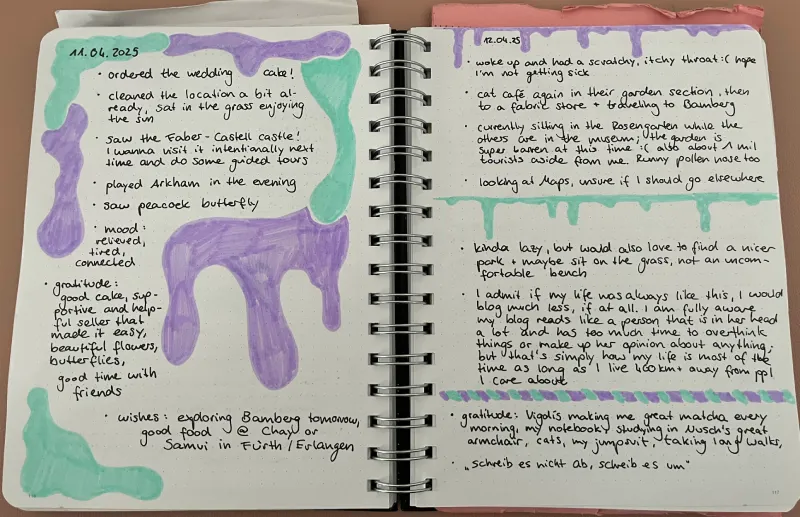 11.04.2025
• ordered the wedding cake!
• cleaned the location a bit al-
ready, sat in the grass enjoying
the sun
• saw the Faber-Castell castle!
I wanna visit it intentionally next
time and do some guided tours
• played Arkham in the evening
• saw peacock butterfly
• mood:
relieved,
tired,
connected
• gratitude:
good cake, sup-
portive and help-
ful seller that
made it easy,
beautiful flowers,
butterflies,
good time with
friends
• wishes: exploring Bamberg tomorrow,
good food @ Chay or
Samui in Fürth/Erlangen
12.04.25
• woke up and had a scratchy, itchy throat :( hope
I'm not getting sick
• cat café again in their garden section, then
to a fabric store + traveling to Bamberg
• currently sitting in the Rosengarten while the
others are in the museum; the garden is
super barren at this time :( also about 1 mil
tourists aside from me. Runny pollen nose too
• looking at Maps, unsure if I should go elsewhere
• kinda lazy, but would also love to find a nicer
park + maybe sit on the grass, not an uncom-
fortable bench
• I admit if my life was always like this, I would
blog much less, if at all. I am fully aware
my blog reads like a person that is in her head
a lot and has too much time to overthink
things or make up her opinion about anything;
but that's simply how my life is most of the
time as long as I live 400km+ away from ppl
I care about
• gratitude: Vigdis making me great matcha every
morning, my notebook, studying in Nusch's great
armchair, cats, my jumpsuit, taking long walks,
• „schreib es nicht ab, schreib es um"